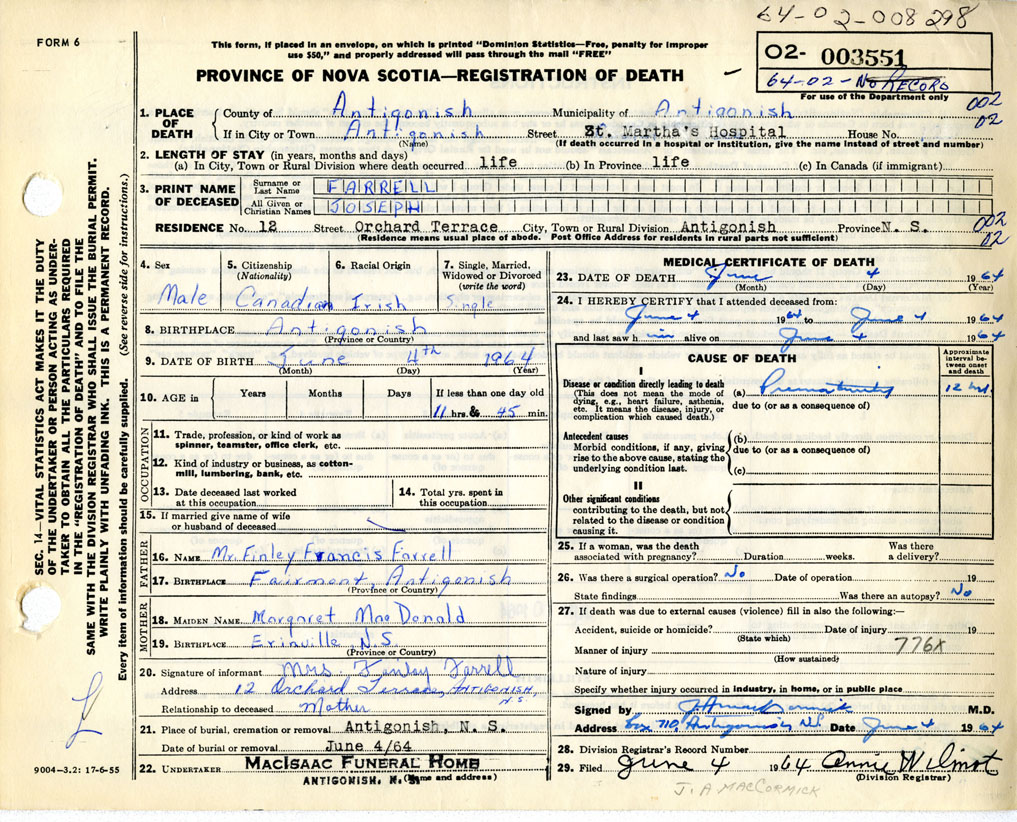 64-02-008298
FORM 6
This form, if placed in an envelope, on which is printed "Dominion Statistics—Free, penalty for improper
use $50," and properly addressed will pass through the mail "FREE"
PROVINCE OF NOVA SCOTIA—REGISTRATION OF DEATH
02- 003551
64-02- No RECORD
For use of the Department only
002
02
1. PLACE OF DEATH
County of Antigonish Municipality of Antigonish
If in City or Town Antigonish Street St. Martha's Hospital House No.
(Name) (If death occurred in a hospital or institution, give the name instead of street and number)
2. LENGTH OF STAY (in years, months and days)
(a) In City, Town or Rural Division where death occurred life (b) In Province life (c) In Canada (if immigrant)
3. PRINT NAME OF DECEASED
Surname or Last Name FARRELL
All Given or Christian Names JOSEPH
RESIDENCE No. 12 Street Orchard Terrace City, Town or Rural Division Antigonish Province N. S.
(Residence means usual place of abode. Post Office Address for residents in rural parts not sufficient)
002
02
4. Sex Male
5. Citizenship (Nationality) Canadian
6. Racial Origin Irish
7. Single, Married, Widowed or Divorced (write the word) Single
8. BIRTHPLACE Antigonish
(Province or Country)
9. DATE OF BIRTH June 4th 1964
(Month) (Day) (Year)
10. AGE in Years Months Days If less than one day old
11 hrs. & 45 min.
OCCUPATION
11. Trade, profession, or kind of work as
spinner, teamster, office clerk, etc.
12. Kind of industry or business, as cotton-
mill, lumbering, bank, etc.
13. Date deceased last worked
at this occupation
14. Total yrs. spent in
this occupation
15. If married give name of wife
or husband of deceased
FATHER
16. NAME Mr. Finley Francis Farrell
17. BIRTHPLACE Fairmont, Antigonish
(Province or Country)
MOTHER
18. MAIDEN NAME Margaret MacDonald
19. BIRTHPLACE Erinville, N.S.
(Province or Country)
20. Signature of informant Mrs. Finley Farrell
Address 12 Orchard Terrace, ANTIGONISH, N.S.
Relationship to deceased Mother
21. Place of burial, cremation or removal Antigonish, N. S.
Date of burial or removal June 4/64
22. UNDERTAKER MACISAAC FUNERAL HOME
ANTIGONISH, N. S. (Name and address)
MEDICAL CERTIFICATE OF DEATH
23. DATE OF DEATH June 4 1964
(Month) (Day) (Year)
24. I HEREBY CERTIFY that I attended deceased from:
June 4 1964 to June 4 1964
and last saw him alive on June 4 1964
CAUSE OF DEATH
Approximate interval between onset and death
I
Disease or condition directly leading to death
(This does not mean the mode of
dying, e.g., heart failure, asthenia,
etc. It means the disease, injury, or
complication which caused death.)
(a) Prematurity 12 hrs.
due to (or as a consequence of)
Antecedent causes
Morbid conditions, if any, giving
rise to the above cause, stating the
underlying condition last.
(b)
due to (or as a consequence of)
(c)
II
Other significant conditions
contributing to the death, but not
related to the disease or condition
causing it.
25. If a woman, was the death Was there
associated with pregnancy? Duration weeks. a delivery?
26. Was there a surgical operation? No Date of operation 19
State findings Was there an autopsy? No
27. If death was due to external causes (violence) fill in also the following:—
Accident, suicide or homicide? Date of injury 19
(State which)
Manner of injury 776X
(How sustained)
Nature of injury
Specify whether injury occurred in industry, in home, or in public place
Signed by J A MacCormick M.D.
Address Box 710, Antigonish, N.S. Date June 4 1964
28. Division Registrar's Record Number
29. Filed June 4 1964 Annie Wilmot
(Division Registrar)
J. A MACCORMICK
SEC. 14—VITAL STATISTICS ACT MAKES IT THE DUTY
OF THE UNDERTAKER OR PERSON ACTING AS UNDER-
TAKER TO OBTAIN ALL THE PARTICULARS REQUIRED
IN THE "REGISTRATION OF DEATH" AND TO FILE THE
SAME WITH THE DIVISION REGISTRAR WHO SHALL ISSUE THE BURIAL PERMIT.
WRITE PLAINLY WITH UNFADING INK. THIS IS A PERMANENT RECORD.
Every item of information should be carefully supplied. (See reverse side for instructions.)
9004-3.2: 17-6-55